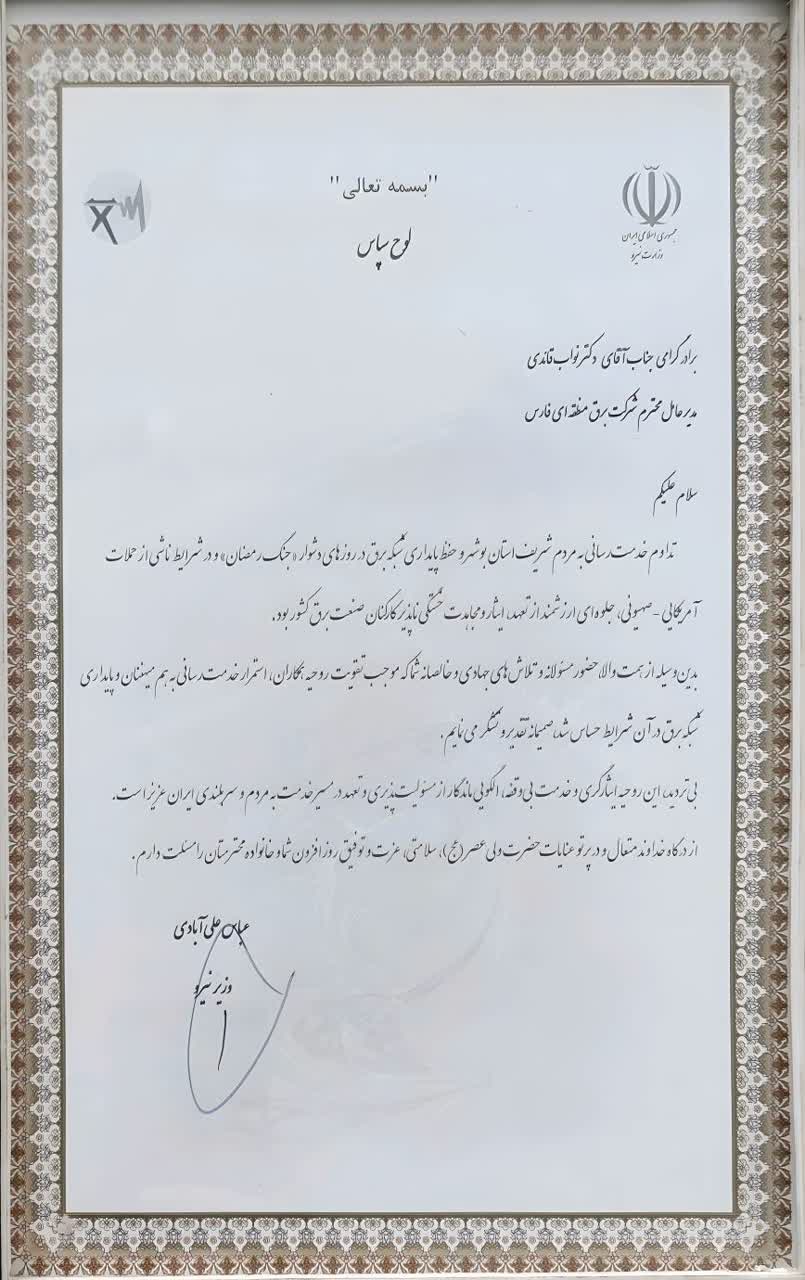 "بسمه تعالی"
لوح سپاس
جمهوری اسلامی ایران
وزارت نیرو
برادر گرامی جناب آقای دکتر نواب قائدی
مدیرعامل محترم شرکت برق منطقه ای فارس
سلام علیکم
تداوم خدمت رسانی به مردم شریف استان بوشهر و حفظ پایداری شبکه برق در روزهای دشوار «جنگ رمضان» و در شرایط ناشی از حملات
آمریکایی - صهیونی، جلوه ای ارزشمند از تعهد، ایثار و مجاهدت خستگی ناپذیر کارکنان صنعت برق کشور بود.
بدین وسیله از همت والا، حضور مسئولانه و تلاش های جهادی و خالصانه شما که موجب تقویت روحیه همکاران، استمرار خدمت رسانی به هم میهنان و پایداری
شبکه برق در آن شرایط حساس شد، صمیمانه تقدیر و تشکر می نمایم.
بی تردید، این روحیه ایثارگری و خدمت بی وقفه، الگویی ماندگار از مسئولیت پذیری و تعهد در مسیر خدمت به مردم و سربلندی ایران عزیز است.
از درگاه خداوند متعال و در پرتو عنایات حضرت ولی عصر (عج)، سلامتی، عزت و توفیق روزافزون شما و خانواده محترمتان را مسئلت دارم.
عباس علی آبادی
وزیر نیرو